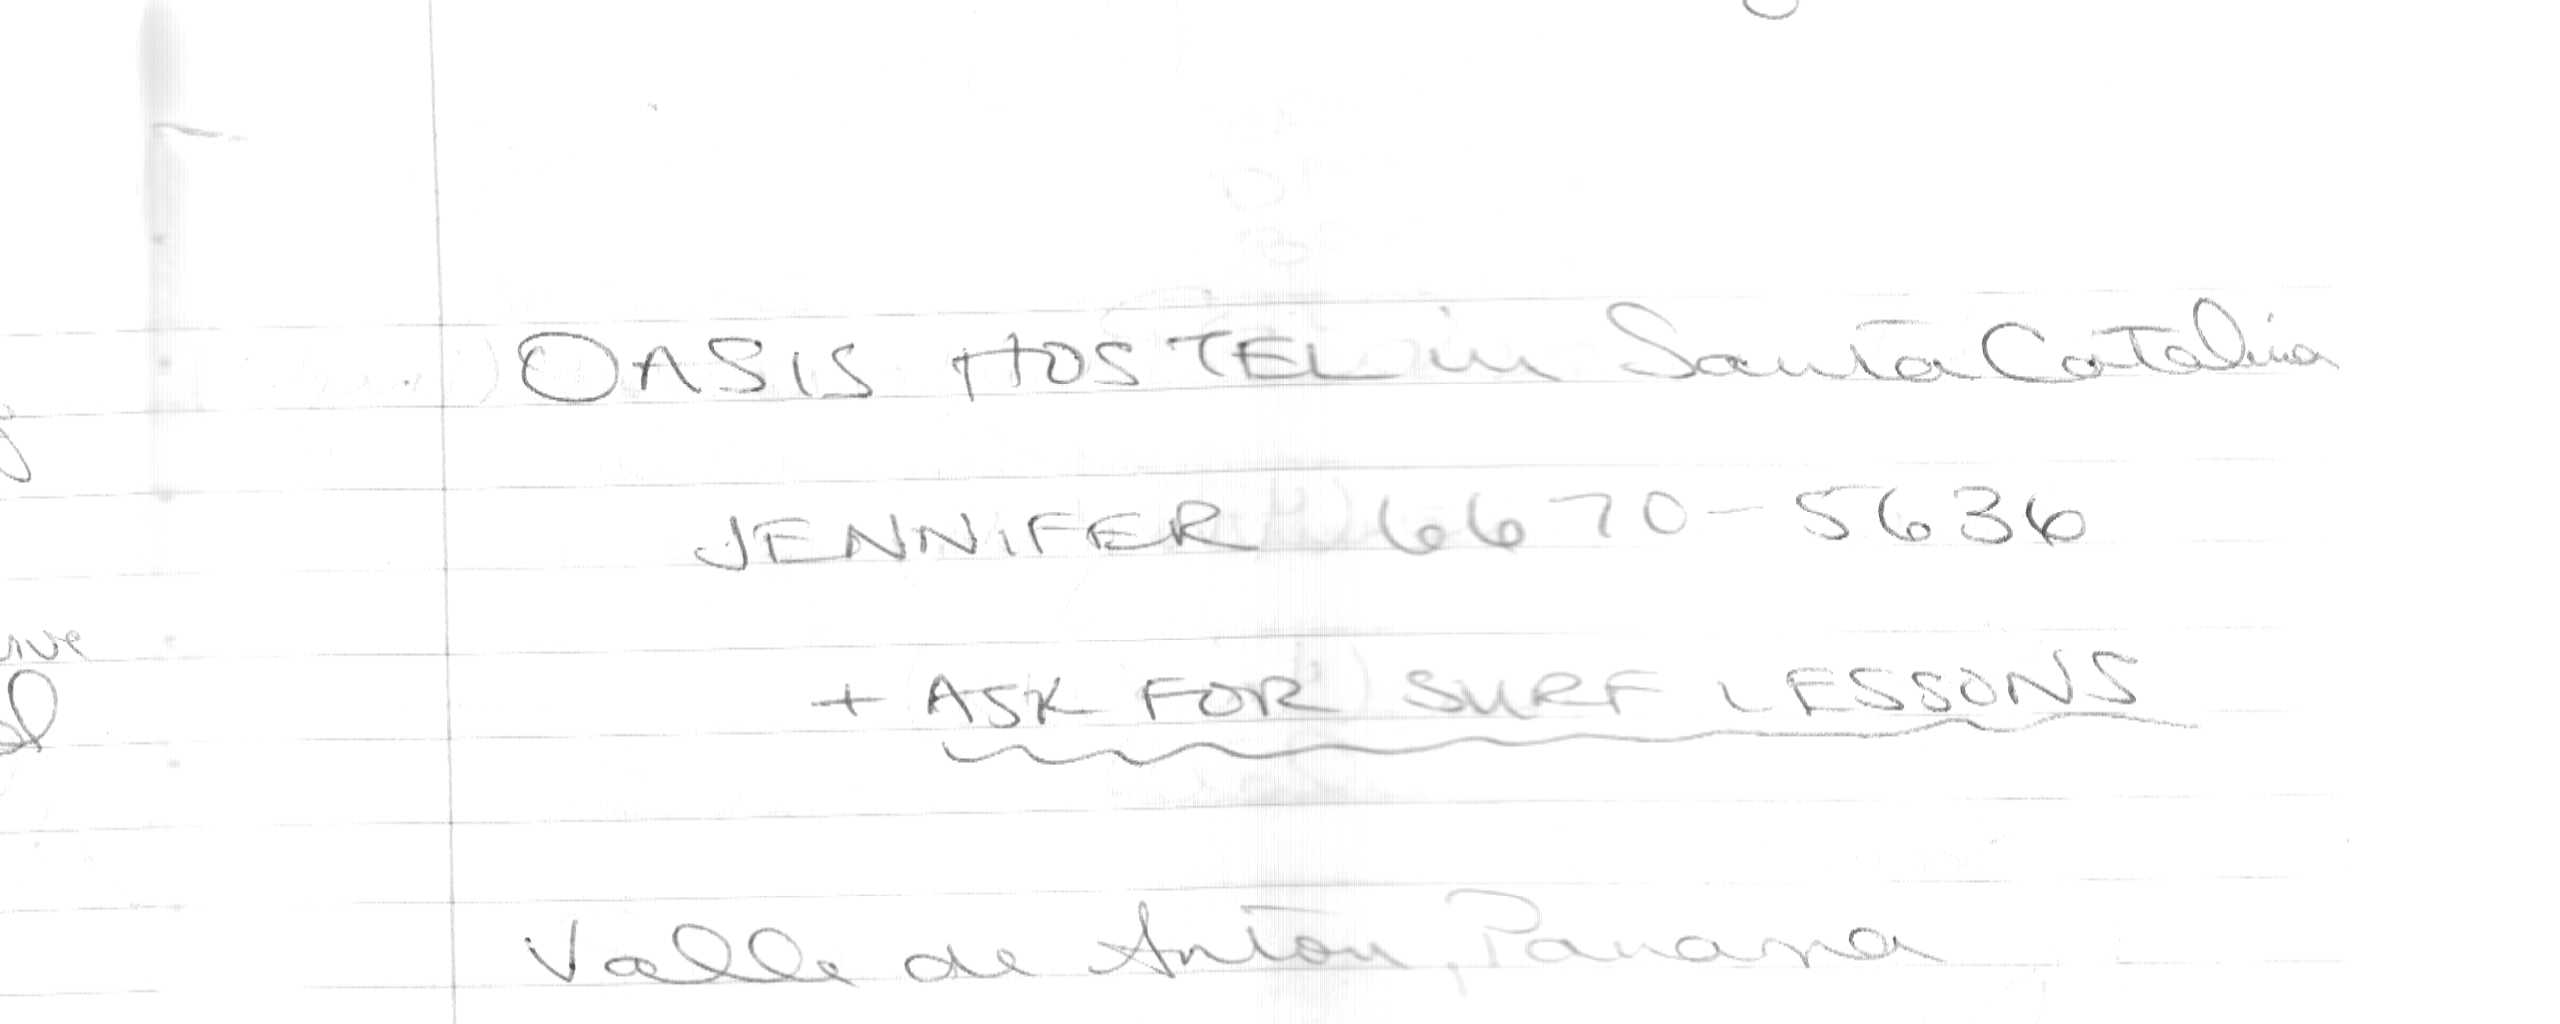 OASIS HOSTEL in Santa Catalina
JENNIFER 6670-5636
+ ASK FOR SURF LESSONS
Valle de Anton, Panama